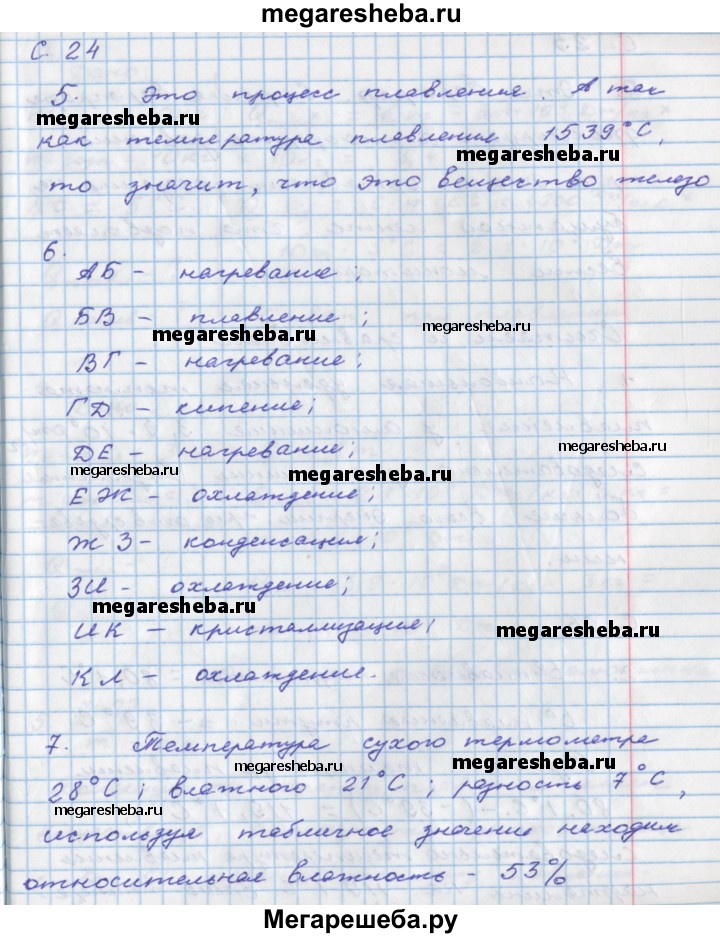 megaresheba.ru
С. 24
5. Это процесс плавления. А так
megaresheba.ru
как температура плавления 1539°С,
megaresheba.ru
то значит, что это вещество железо
6.
АБ - нагревание;
БВ - плавление;
megaresheba.ru
megaresheba.ru
ВГ - нагревание;
ГД - кипение;
ДЕ - нагревание;
megaresheba.ru
megaresheba.ru
megaresheba.ru
ЕЖ - охлаждение;
ЖЗ - конденсация;
ЗИ - охлаждение;
megaresheba.ru
ИК - кристаллизация;
megaresheba.ru
КЛ - охлаждение.
7. Температура сухого термометра
megaresheba.ru
megaresheba.ru
28°С; влажного 21°С; разность 7°С,
megaresheba.ru
используя табличное значение находим
относительная влажность - 53%
Мегарешеба.ру